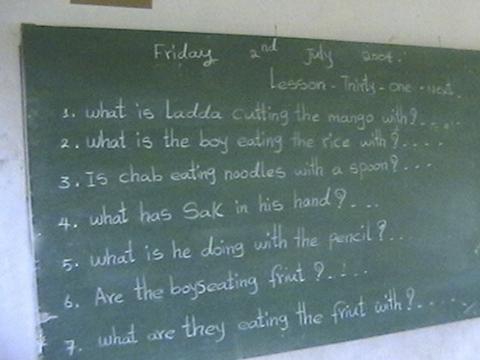 Friday 2nd July 2004.
Lesson - Thirty - one - next.
1. what is Ladda cutting the mango with?.....
2. what is the boy eating the rice with?....
3. Is chab eating noodles with a spoon?...
4. what has Sak in his hand?...
5. what is he doing with the pencil?..
6. Are the boyseating friut?....
7. what are they eating the friut with?.....